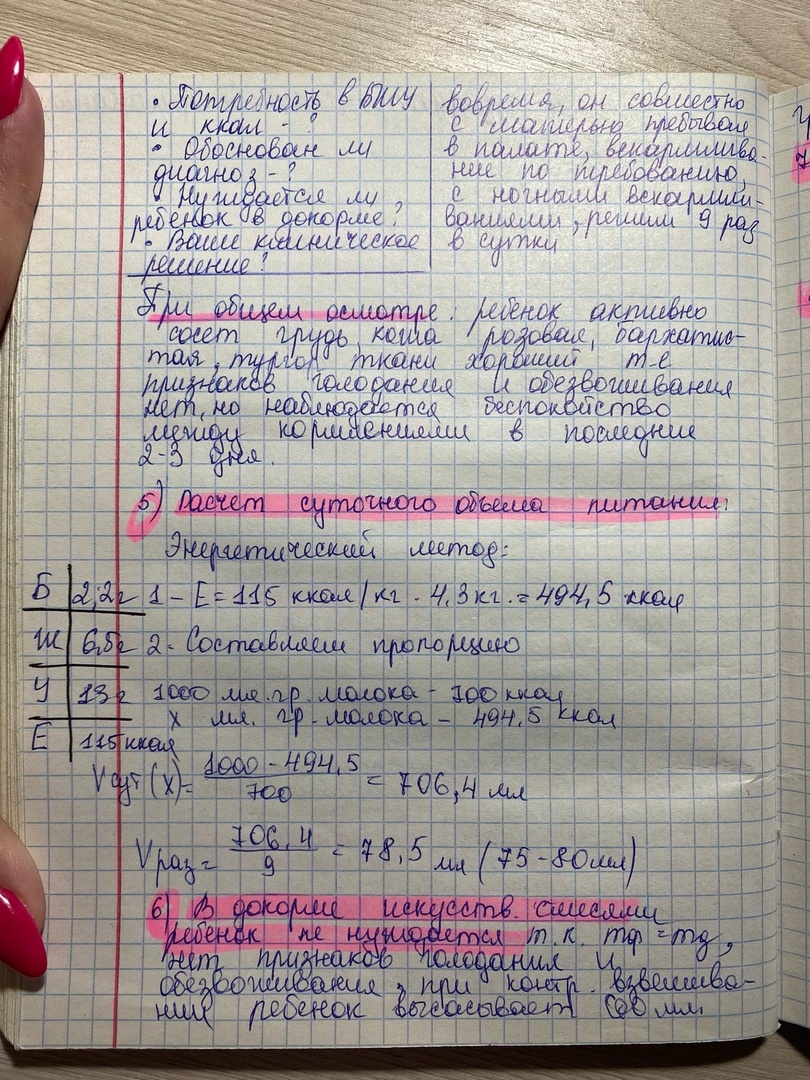 • Потребность в БЖУ
и ккал - ?
• Обоснован ли
диагноз - ?
• Нуждается ли,
ребенок в докорме?
• Ваше клиническое
решение?
вовремя, он совместно
с матерью пребывал
в палате, вскармлива-
ние по требованию,
с ночными вскармли-
ваниями, решили 9 раз
в сутки
При общем осмотре: ребенок активно
сосет грудь, кожа розовая, бархатис-
тая, тургор ткани хороший т-е
признаков голодания и обезвоживания
нет, но наблюдается беспокойство
между кормлениями в последние
2-3 дня.
5) Расчет суточного объема питания:
Энергетический метод:
Б 2,2г
Ж 6,5г
У 13г
Е 115 ккал
1 - Е = 115 ккал/кг · 4,3 кг. = 494,5 ккал
2 - Составляем пропорцию
1000 мл. гр. молока - 700 ккал
х мл. гр. молока - 494,5 ккал
Vсут(х) = 1000 - 494,5 / 700 = 706,4 мл
Vраз = 706,4 / 9 = 78,5 мл (75-80мл)
6) В докорме искусств. смесями
ребенок не нуждается т.к. mф = mд,
нет признаков голодания и
обезвоживания, при контр. взвешива-
нии ребенок высасывает мл.